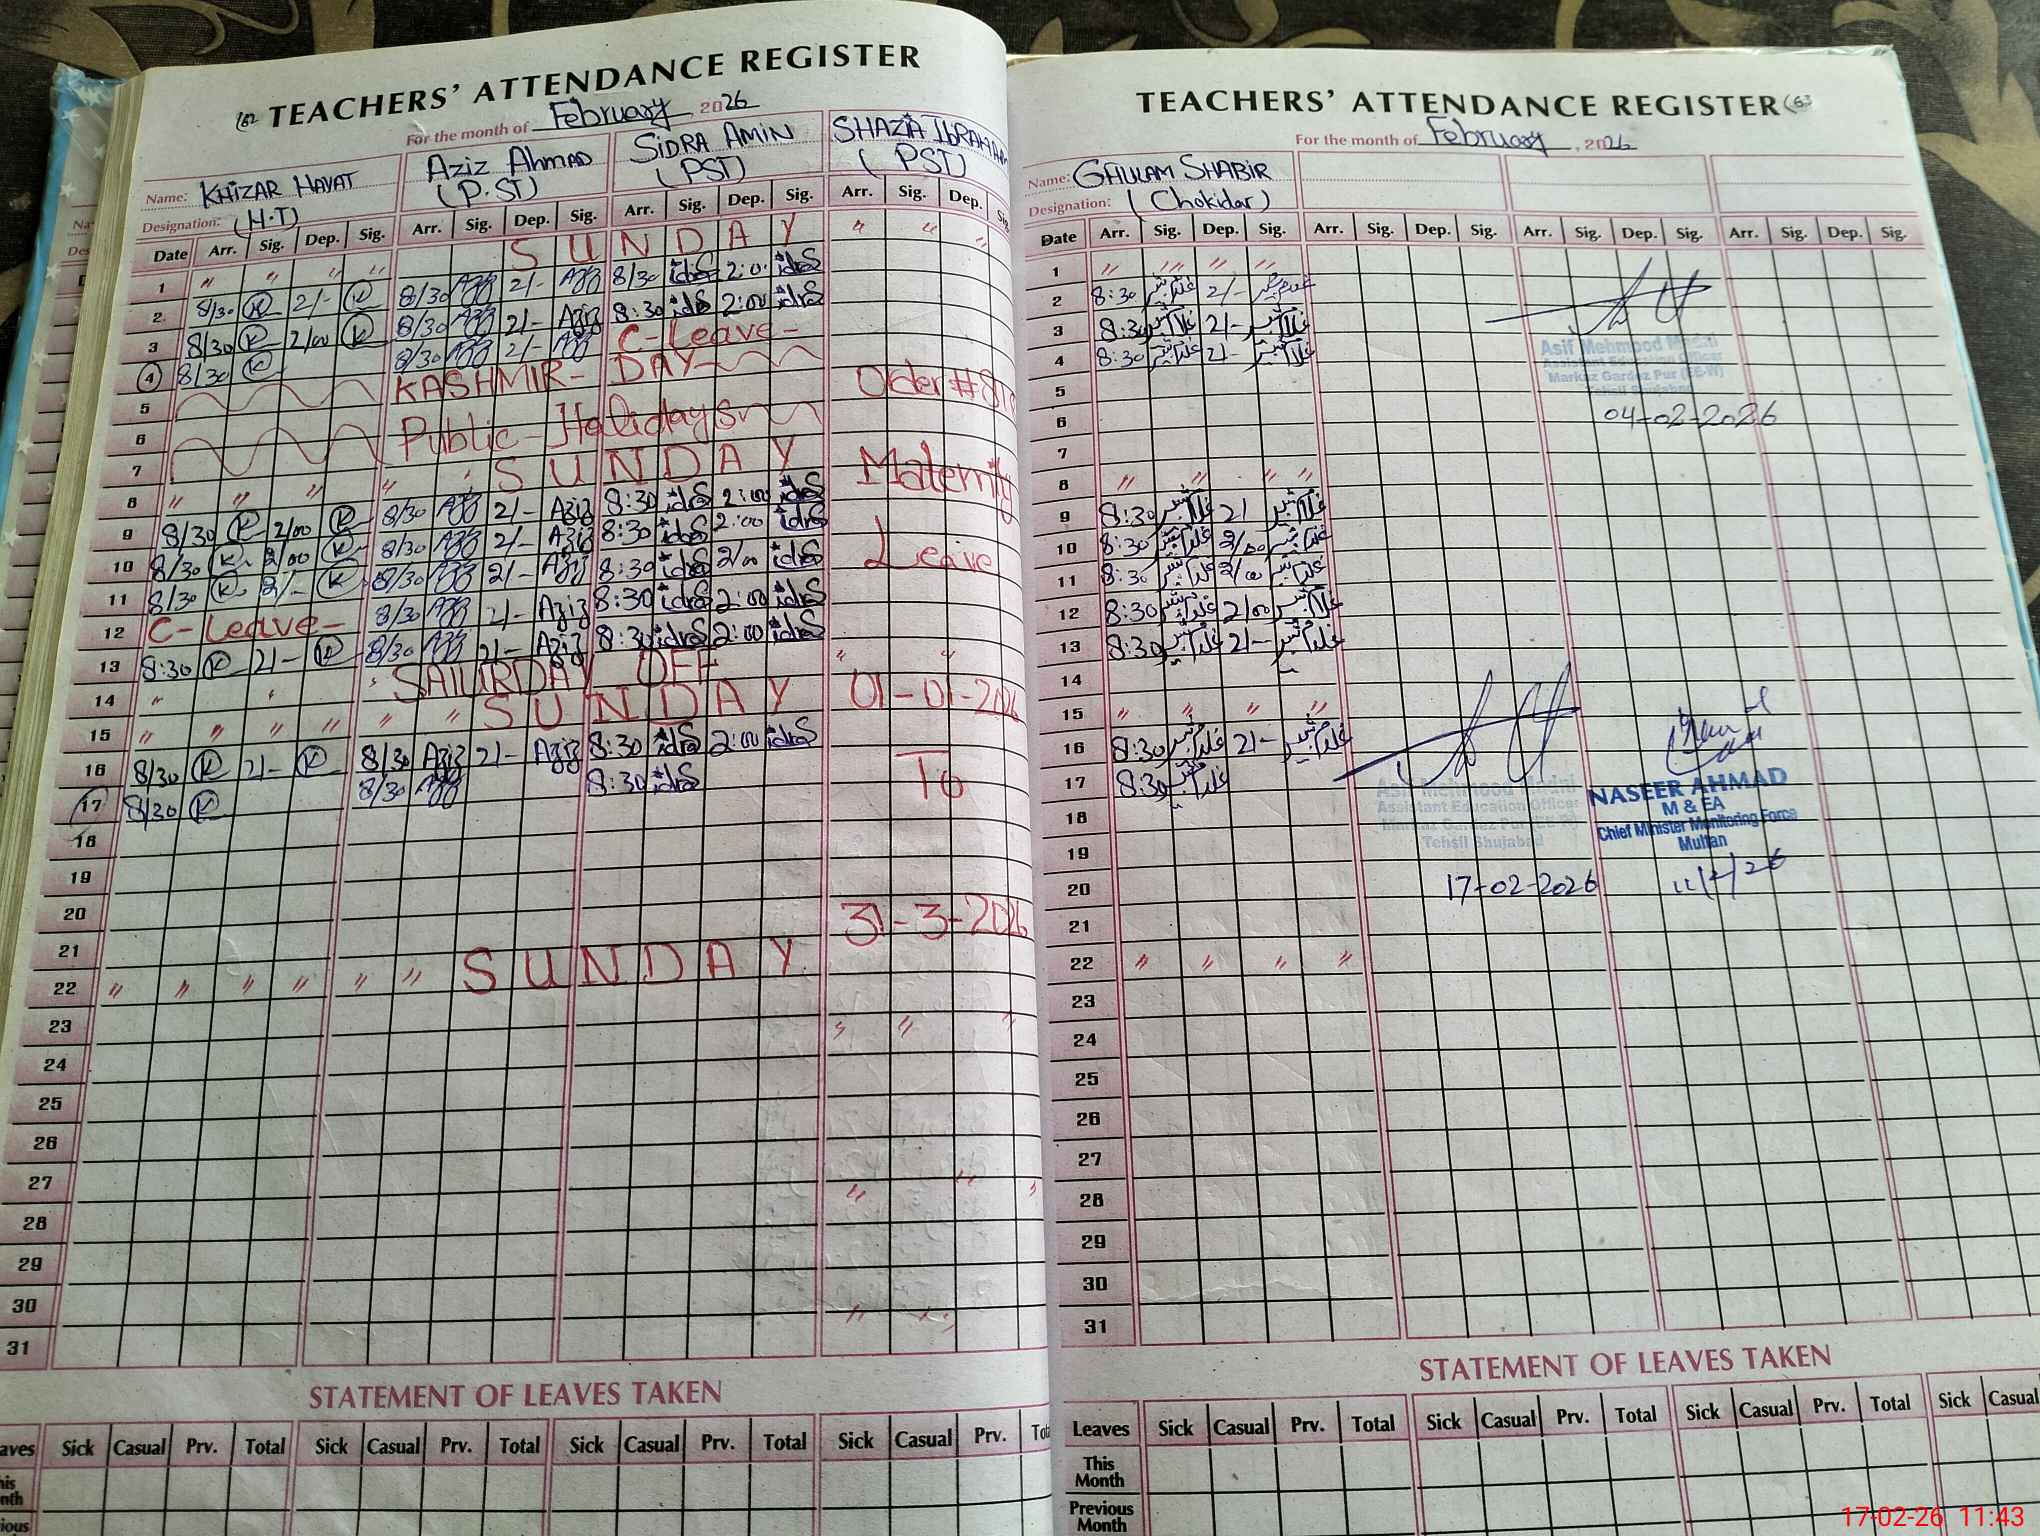 162 TEACHERS' ATTENDANCE REGISTER
For the month of February, 2026
Name: KHIZAR HAYAT Aziz Ahmad SIDRA AMIN SHAZIA IbRAHim
Designation: (H.T) (P.ST) (PST) (PST)
Date Arr. Sig. Dep. Sig. Arr. Sig. Dep. Sig. Arr. Sig. Dep. Sig. Arr. Sig. Dep. Sig.
1 " " " " SUNDAY " " "
2 8/30 K 2/- K 8/30 Azz 2/- Azz 8/30 idrS 2:0. idrS
3 8/30 K 2/00 K 8/30 Azz 2/- Aziz 8:30 idrS 2:00 idrS
4 8/30 K 8/30 Azz 2/- Azz C-Leave-
5 KASHMIR- DAY Order #
6 Public-Holidays
7
8 " " " " " SUNDAY Maternity
9 8/30 K 2/00 K 8/30 Azz 2/- Aziz 8:30 idrS 2:00 idrS
10 8/30 K 2/00 K 8/30 Azz 2/- Aziz 8:30 idrS 2:00 idrS Leave
11 8/30 K 2/- K 8/30 Azz 2/- Azz 8:30 idrS 2/00 idrS
12 C-Leave- 8/30 Azz 2/- Aziz 8:30 idrS 2:00 idrS
13 8:30 K 2/- K 8/30 Azz 2/- Aziz 8:30 idrS 2:00 idrS
14 " " SATURDAY OFF " "
15 " " " " " " SUNDAY 01-01-2026
16 8/30 K 2/- K 8/30 Aziz 2/- Aziz 8:30 idrS 2:00 idrS
17 8/30 K 8/30 Azz 8:30 idrS To
18
19
20
21 31-3-2026
22 " " " " " " SUNDAY
23
24
25
26
27
28
29
30
31
STATEMENT OF LEAVES TAKEN
Sick Casual Prv. Total Sick Casual Prv. Total Sick Casual Prv. Total Sick Casual Prv.
TEACHERS' ATTENDANCE REGISTER
For the month of February, 2026
Name: GHULAM SHABIR
Designation: (Chokidar)
Date Arr. Sig. Dep. Sig. Arr. Sig. Dep. Sig. Arr. Sig. Dep. Sig. Arr. Sig. Dep. Sig.
1 " " " "
2 8:30 غلام شبیر 2/- غلام شبیر
3 8:30 غلام شبیر 2/- غلام شبیر
4 8:30 غلام شبیر 2/- غلام شبیر
Asif Mehmood Madni
Assistant Education Officer
Markaz Gardez Pur (EE-W)
Tehsil Shujabad
5
6 04-02-2026
7
8 " " " "
9 8:30 غلام شبیر 2/ غلام شبیر
10 8:30 غلام شبیر 2/00 غلام شبیر
11 8:30 غلام شبیر 2/00 غلام شبیر
12 8:30 غلام شبیر 2/00 غلام شبیر
13 8:30 غلام شبیر 2/- غلام شبیر
14
15 " " " "
16 8:30 غلام شبیر 2/- غلام شبیر
17 8:30 غلام شبیر
18
19
Asif Mehmood Madni
Assistant Education Officer
Markaz Gardez Pur (EE-W)
Tehsil Shujabad
17-02-2026
NASEER AHMAD
M & EA
Chief Minister Monitoring Force
Multan
11/2/26
20
21
22 " " " "
23
24
25
26
27
28
29
30
31
STATEMENT OF LEAVES TAKEN
Leaves Sick Casual Prv. Total Sick Casual Prv. Total Sick Casual Prv. Total Sick Casual
This Month
Previous Month
17-02-26 11:43